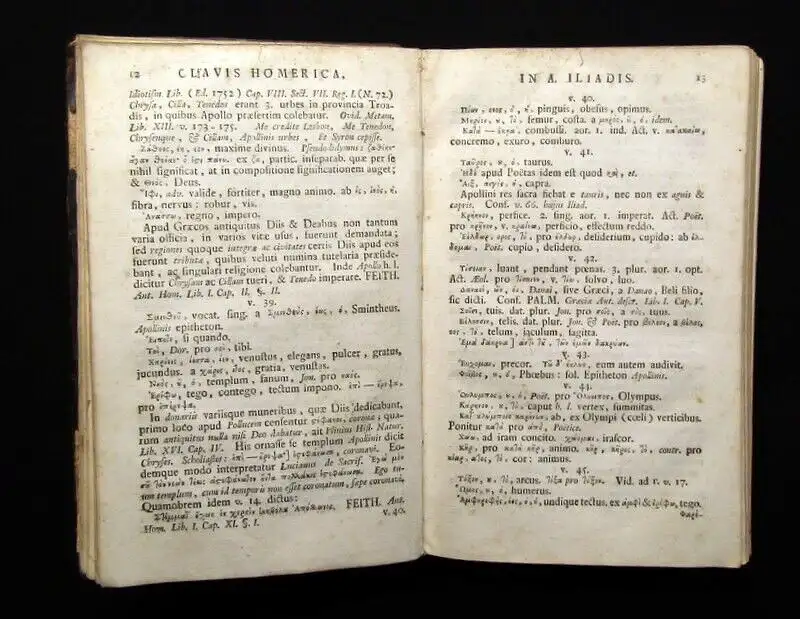 12 CLAVIS HOMERICA,
Idiotism. Lib. (Ed. 1752) Cap. VIII. Sect. VII. Reg. I. (N. 72.)
Chrysa, Cilla, Tenedos erant 3. urbes in provincia Troa-
dis, in quibus Apollo præsertim colebatur. Ovid. Metam.
Lib. XIII. v. 173-175. Me credite Lesbon, Me Tenedon,
Chrysenque, & Cillan, Apollinis urbes, Et Scyron cepisse.
Ζάθεος, maxime divinus. Pseudo-Didymus:
ex ζα, partic. inseparab. quæ per se
nihil significat, at in compositione significationem auget;
& Θεὸς, Deus.
Ἶφι, adv. valide, fortiter, magno animo. ab ἲς, ἰνὸς, ἡ,
fibra, nervus: robur, vis.
Ἀνάσσω, regno, impero.
Apud Græcos antiquitus Diis & Deabus non tantum
varia officia, in varios vitæ usus, fuerunt demandata;
sed regiones quoque integræ ac civitates certis Diis apud eos
fuerunt tributæ, quibus veluti numina tutelaria præside-
bant, ac singulari religione colebantur. Inde Apollo h. l.
dicitur Chrysam ac Cillam tueri, & Tenedo imperare. FEITH.
Ant. Hom. Lib. I. Cap. II. §. II.
v. 39.
Σμινθεῦ, vocat. sing. a Σμινθεὺς, έως, ὁ, Smintheus.
Apollinis epitheton.
Εἴποτε, si quando.
Τοὶ, Dor. pro σοὶ, tibi.
Χαρίεις, ίεσσα, ίεν, venustus, elegans, pulcer, gratus,
jucundus. a χάρις, ιτος, gratia, venustas.
Νηὸς, οῦ, ὁ, templum, fanum, Jon. pro ναός.
Ἐρέφω, tego, contego, tectum impono. ἐπὶ — ἔρεψα,
pro ἐπέρεψα.
In donariis variisque muneribus, quæ Diis dedicabant,
primo loco apud Pollucem censentur στέφανοι, coronæ; qua-
rum antiquitus nulla nisi Deo dabatur, ait Plinius Hist. Natur.
Lib. XVI. Cap. IV. His ornasse se templum Apollinis dicit
Chryses. Scholiastes: coronavi. Eo-
demque modo interpretatur Lucianus de Sacrif.
Ego tu-
um templum, cum id temporis non esset coronatum, sæpe coronavi.
Quamobrem idem v. 14. dictus:
FEITH. Ant.
Hom. Lib. I. Cap. XI. §. I.
v. 40.
IN A. ILIADIS. 13
v. 40.
Πίων, ονος, ὁ, ἡ, pinguis, obesus, opimus.
Μηρίον, ου, τὸ, femur, costa. a μηρὸς, οῦ, ὁ, idem.
Κατὰ — ἔκηα, combussi, aor. 1. ind. Act. v. κατακαίω,
concremo, exuro, comburo.
v. 41.
Ταῦρος, ου, ὁ, taurus.
Ἠδὲ apud Poëtas idem est quod καὶ, et.
Αἲξ, αἰγὸς, ἡ, capra.
Apollini res sacra fichat e tauris, nec non ex agnis &
capris. Conf. v. 66. hujus Iliad.
Κρήηνον, perfice. 2. sing. aor. 1. imperat. Act. Poët.
pro κρῆνον, v. κραίνω, perficio, effectum reddo.
Ἐέλδωρ, ορος, τὸ, pro ἔλδωρ, desiderium, cupido: ab ἔλ-
δομαι, Poët. cupio, desidero.
v. 42.
Τίσειαν, luant, pendant pœnas. 3. plur. aor. 1. opt.
Act. Æol. pro τίσαιεν, v. τίω, solvo, luo.
Δαναοὶ, ῶν, οἱ, Danai, sive Græci, a Danao, Beli filio,
sic dicti. Conf. PALM. Græciæ Ant. descr. Lib. I. Cap. V.
Σοῖσι, tuis. dat. plur. Jon. pro σοῖς, a σὸς, tuus.
Βέλεσσιν, telis. dat. plur. Jon. & Poët. pro βέλεσιν, a βέλος,
εος, τὸ, telum, jaculum, sagitta.
v. 43.
Εὔχομαι, precor. Τοῦ δ' ἔκλυε, eum autem audivit.
Φοῖβος, ου, ὁ, Phœbus: sol. Epitheton Apollinis.
v. 44.
Οὔλυμπος, ου, ὁ, Poët. pro Ὄλυμπος, Olympus.
Κάρηνον, ου, τὸ, caput h. l. vertex, summitas.
ab, ex Olympi (cœli) verticibus.
Ponitur κατὰ pro ἀπὸ, Poëtice.
Χώω, ad iram concito. χώομαι, irascor.
Κῆρ, pro κατὰ κῆρ, animo. κῆρ, κῆρος, τὸ, contr. pro
κέαρ, ατος, τὸ, cor: animus.
v. 45.
Τόξον, ου, τὸ, arcus. τόξα pro τόξον. Vid. ad r. v. 17.
Ὦμος, ου, ὁ, humerus.
Ἀμφηρεφὴς, έος, ὁ, ἡ, undique tectus. ex ἀμφὶ & ἐρέφω, tego.
Φαρέ-